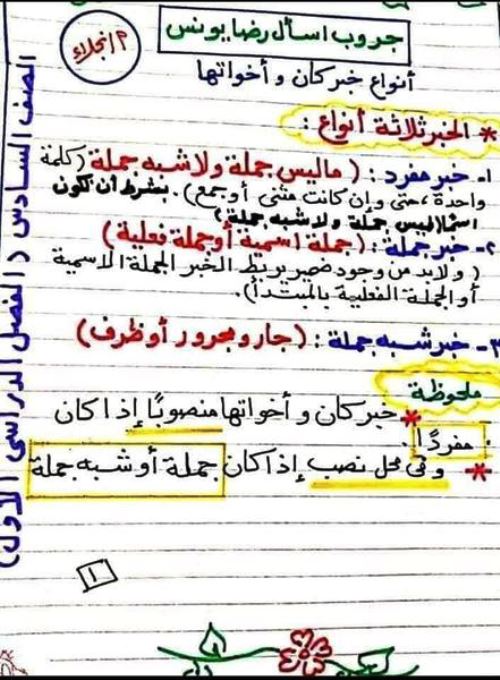 جروب اسأل رضا يونس
م/نجلاء
أنواع خبر كان وأخواتها
* الخبر ثلاثة أنواع:
١- خبر مفرد: (ماليس جملة ولا شبه جملة (كلمة
واحدة، حتى وإن كانت مثنى أو جمع). بشرط أن تكون
اسماً ليس جملة ولا شبه جملة)
٢- خبر جملة: (جملة اسمية أو جملة فعلية)
(ولابد من وجود ضمير يربط الخبر الجملة الاسمية
أو الجملة الفعلية بالمبتدأ).
٣- خبر شبه جملة: (جار ومجرور أو ظرف)
ملحوظة
* خبر كان وأخواتها منصوبًا إذا كان
مفردًا.
* وفى محل نصب إذا كان جملة أو شبه جملة
١
الصف السادس (الفصل الدراسى الأول)